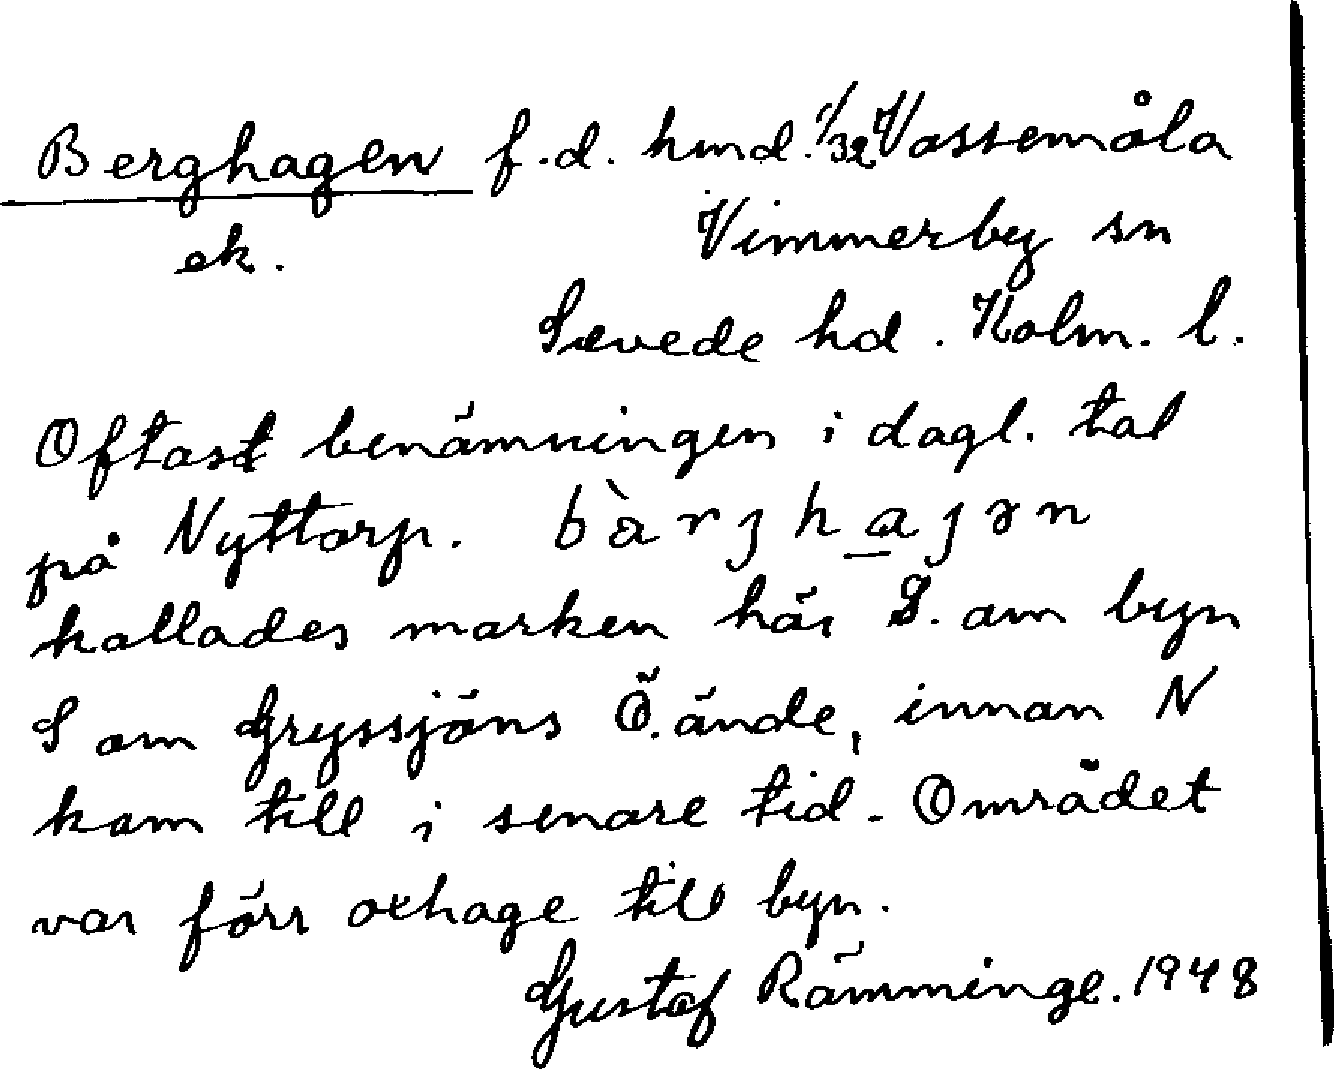 Berghagen f.d. hmd. 1/32 Vassemåla
ek. Vimmerby sn
Sevede hd. Kalm. l.
Oftast benämningen i dagl. tal
på Nyttorp. bàrjhajən
kallades marken här S. om byn
S om Gryssjöns Ö. ände, innan N
kom till i senare tid. Området
var förr oxhage till byn.
Gustaf Rämminge. 1948